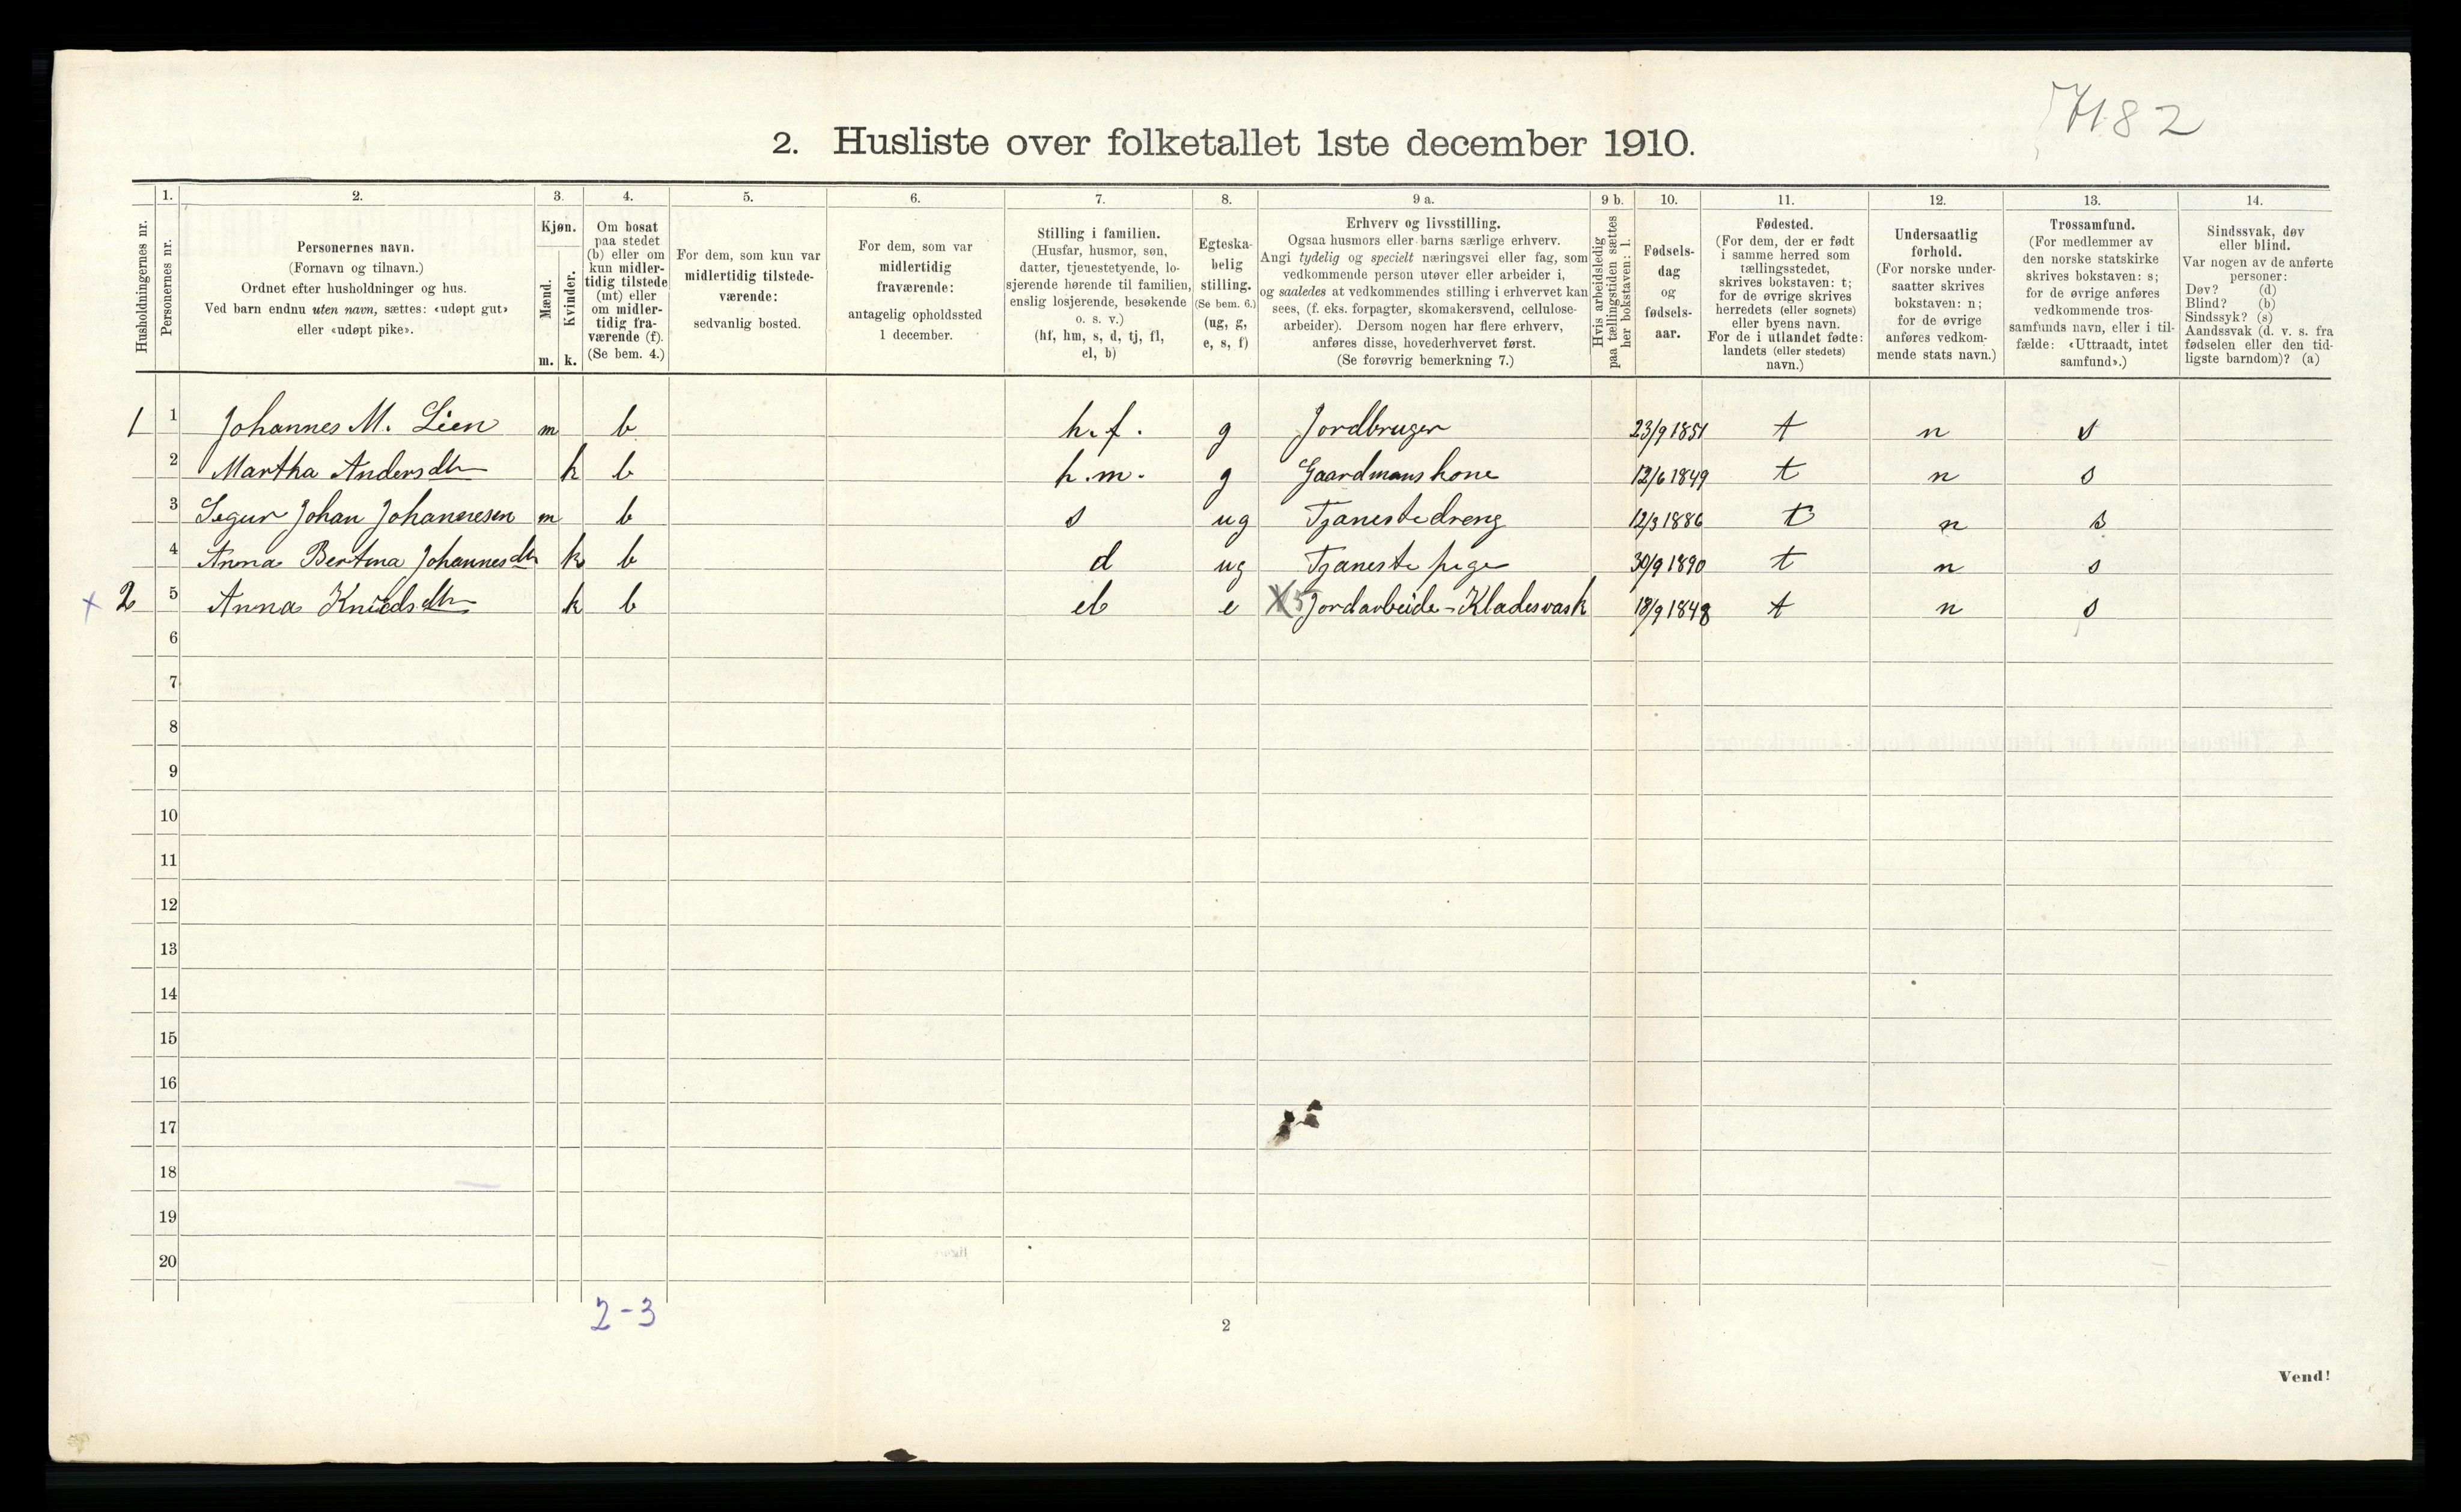 7182
2. Husliste over folketallet 1ste december 1910.
Husholdningernes nr.
1.
Personernes nr.
2.
Personernes navn.
(Fornavn og tilnavn.)
Ordnet efter husholdninger og hus.
Ved barn endnu uten navn, sættes: «udøpt gut»
eller «udøpt pike».
3.
Kjøn.
Mænd.
Kvinder.
m. k.
4.
Om bosat
paa stedet
(b) eller om
kun midler-
tidig tilstede
(mt) eller
om midler-
tidig fra-
værende (f).
(Se bem. 4.)
5.
For dem, som kun var
midlertidig tilstede-
værende:
sedvanlig bosted.
6.
For dem, som var
midlertidig
fraværende:
antagelig opholdssted
1 december.
7.
Stilling i familien.
(Husfar, husmor, søn,
datter, tjenestetyende, lo-
sjerende hørende til familien,
enslig losjerende, besøkende
o. s. v.)
(hf, hm, s, d, tj, fl,
el, b)
8.
Egteska-
belig
stilling.
(Se bem. 6.)
(ug, g,
e, s, f)
9 a.
Erhverv og livsstilling.
Ogsaa husmors eller barns særlige erhverv.
Angi tydelig og specielt næringsvei eller fag, som
vedkommende person utøver eller arbeider i,
og saaledes at vedkommendes stilling i erhvervet kan
sees, (f. eks. forpagter, skomakersvend, cellulose-
arbeider). Dersom nogen har flere erhverv,
anføres disse, hovederhvervet først.
(Se forøvrig bemerkning 7.)
9 b.
Hvis arbeidsledig
paa tællingstiden sættes
her bokstaven: l.
10.
Fødsels-
dag
og
fødsels-
aar.
11.
Fødested.
(For dem, der er født
i samme herred som
tællingsstedet,
skrives bokstaven: t;
for de øvrige skrives
herredets (eller sognets)
eller byens navn.
For de i utlandet fødte:
landets (eller stedets)
navn.)
12.
Undersaatlig
forhold.
(For norske under-
saatter skrives
bokstaven: n;
for de øvrige
anføres vedkom-
mende stats navn.)
13.
Trossamfund.
(For medlemmer av
den norske statskirke
skrives bokstaven: s;
for de øvrige anføres
vedkommende tros-
samfunds navn, eller i til-
fælde: «Uttraadt, intet
samfund».)
14.
Sindssvak, døv
eller blind.
Var nogen av de anførte
personer:
Døv? (d)
Blind? (b)
Sindssyk? (s)
Aandssvak (d. v. s. fra
fødselen eller den tid-
ligste barndom)? (a)
1 1 Johannes M. Lien m b h.f. g Jordbruger 23/9 1851 t n s
2 Martha Andersdtr k b h.m. g Gaardmans kone 12/6 1849 t n s
3 Segur Johan Johannesen m b s ug Tjanestedreng 12/3 1886 t n s
4 Anna Bertina Johannesdtr k b d ug Tjaneste pige 30/9 1890 t n s
x 2 5 Anna Knudsdtr k b el e X 5 Jordarbeide - Kladesvask 18/9 1848 t n s
6
7
8
9
10
11
12
13
14
15
16
17
18
19
20
2-3
2
Vend!